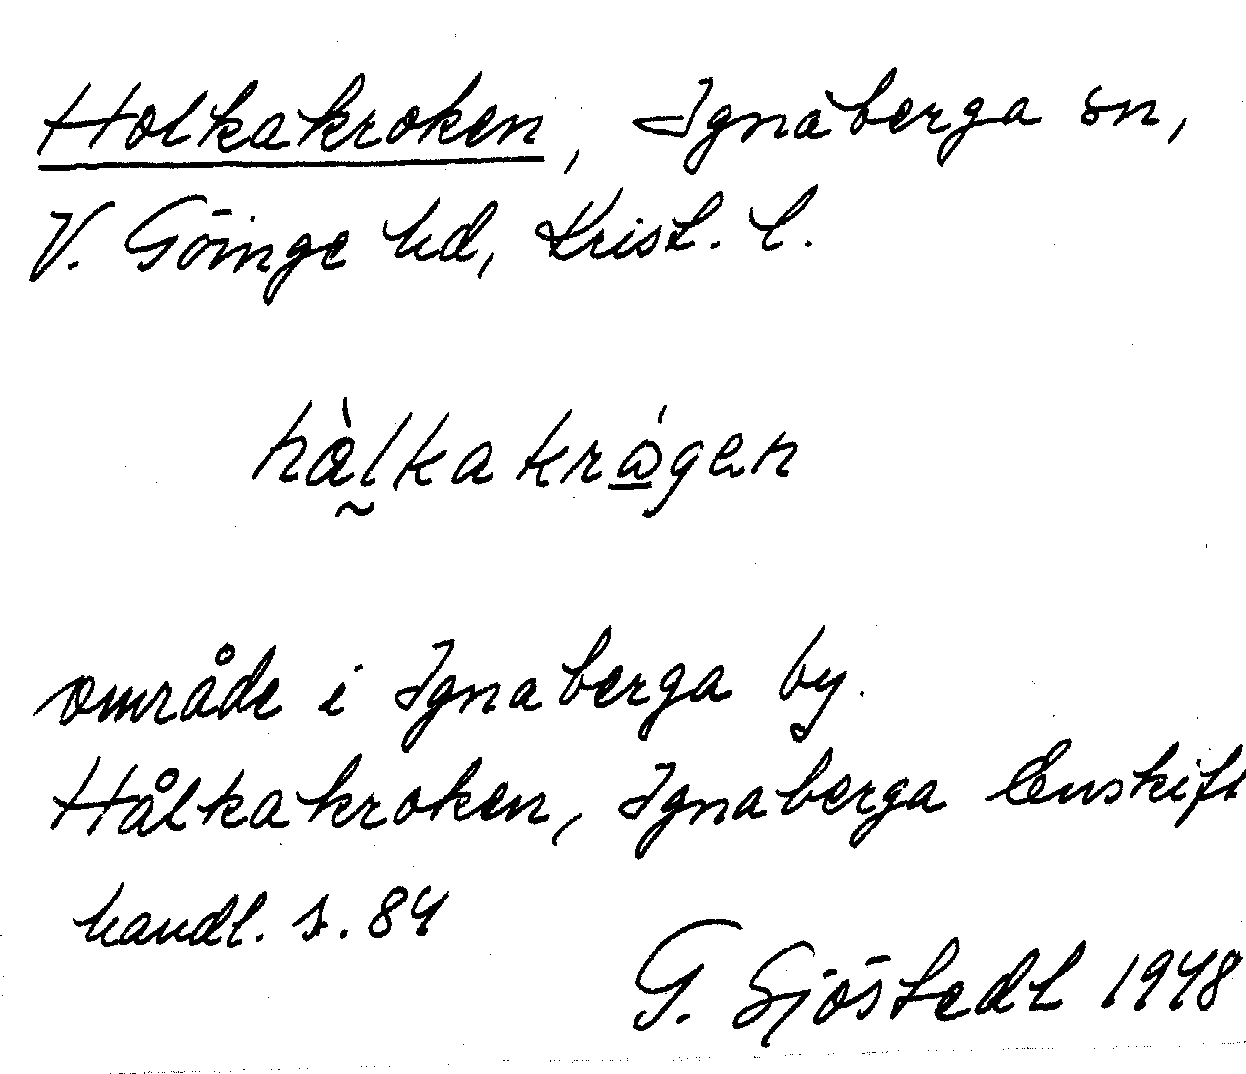 Holkakroken, Ignaberga sn,
V. Göinge hd, Krist. l.
hàl̰kakrǻgen
område i Ignaberga by.
Hålkakroken, Ignaberga Enskift
handl. s. 84
G. Sjöstedt 1948